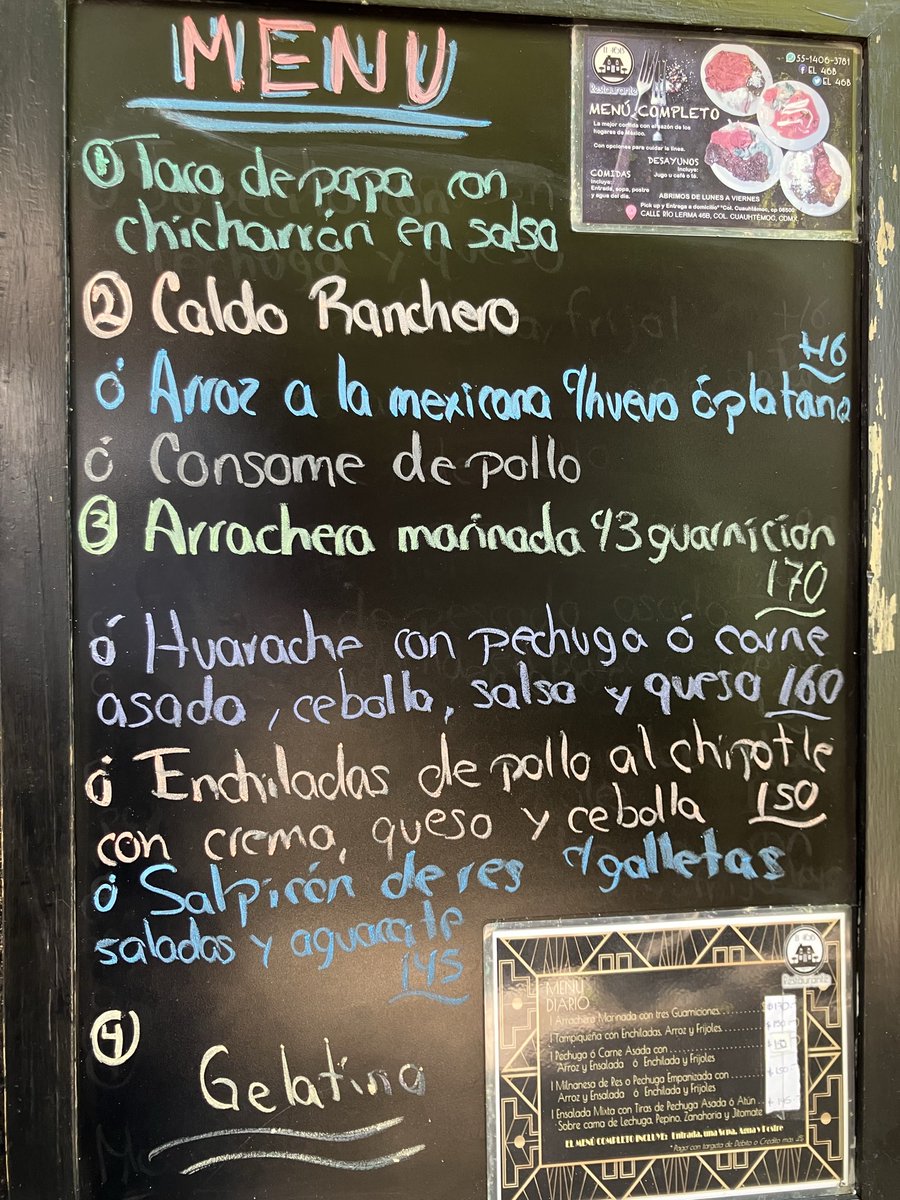 MENU
① Taco de papa con
chicharrón en salsa
② Caldo Ranchero
+16
ó Arroz a la mexicana c/huevo ó platano
ó Consome de pollo
③ Arrachera marinada c/3 guarnición
170
ó Huarache con pechuga ó carne
asada, cebolla, salsa y queso 160
ó Enchiladas de pollo al chipotle
con crema, queso y cebolla 150
ó Salpicón de res c/galletas
saladas y aguacate
145
④
Gelatina
El 46B
Restaurante
MENÚ COMPLETO
La mejor comida con el sazón de los
hogares de México.
Con opciones para cuidar la línea.
COMIDAS
Incluye:
Entrada, sopa, postre
y agua del día.
DESAYUNOS
Incluye:
Jugo u café o té.
55-1406-3781
EL 46B
EL 46B
ABRIMOS DE LUNES A VIERNES
Pick up y Entrega a domicilio* *Col. Cuauhtémoc, cp 06500
CALLE RÍO LERMA 46B, COL. CUAUHTÉMOC, CDMX.
El 46B
Restaurante
MENÚ
DIARIO
1 Arrachera Marinada con tres Guarniciones
1 Tampiqueña con Enchiladas, Arroz y Frijoles
1 Pechuga ó Carne Asada con
Arroz y Ensalada ó Enchilada y Frijoles
1 Milnanesa de Res o Pechuga Empanizada con
Arroz y Ensalada ó Enchilada y Frijoles
1 Ensalada Mixta con Tiras de Pechuga Asada ó Atún
Sobre cama de Lechuga, Pepino, Zanahoria y Jitomate
EL MENÚ COMPLETO INCLUYE: Entrada, una Sopa, Agua y Postre
*Pago con tarjeta de Débito o Crédito mas